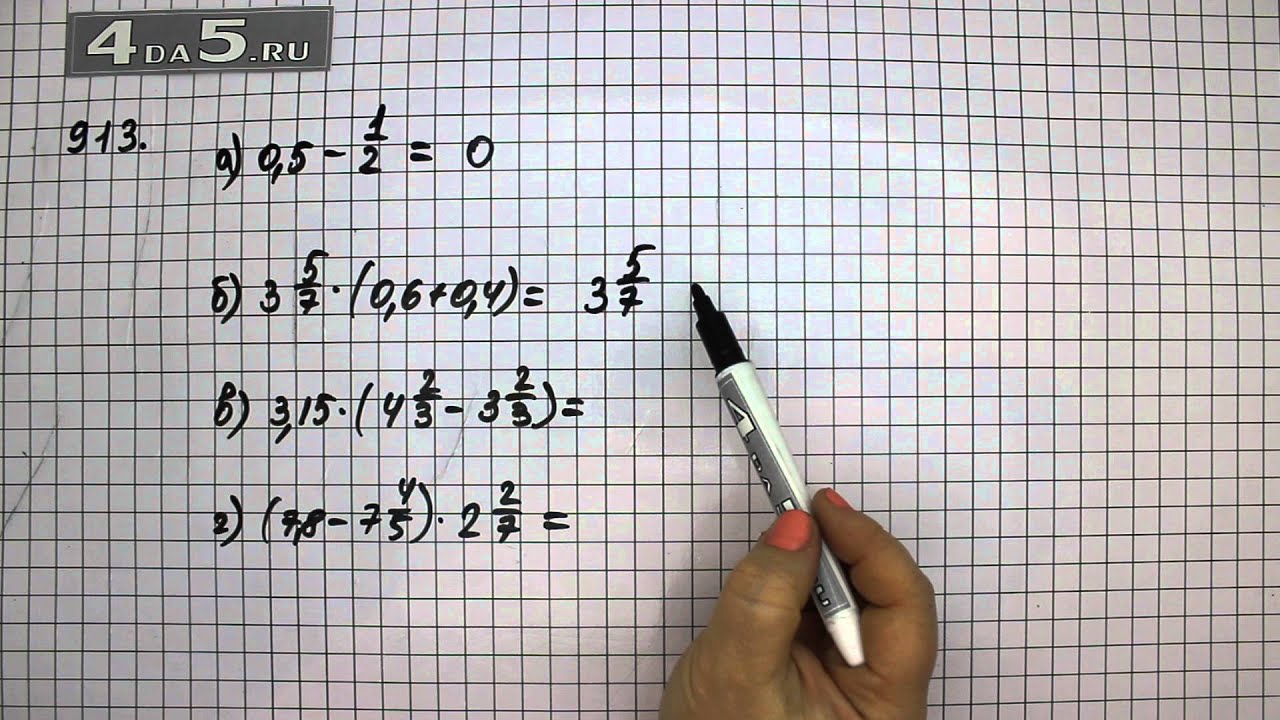 4DA5.RU
913. а) 0,5 - 1/2 = 0
б) 3 5/7 · (0,6+0,4) = 3 5/7
в) 3,15 · (4 2/3 - 3 2/3) =
г) (7,8 - 7 4/5) · 2 2/7 =